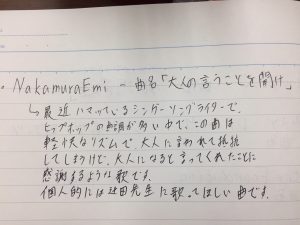 ・NakamuraEmi - 曲名「大人の言うことを聞け」
↳最近ハマっているシンガーソングライターで、
ヒップホップの曲調が多い中で、この曲は
軽快なリズムで大人に言われて抵抗
してしまうけど、大人になると言ってくれたことに
感謝するような歌です。
個人的には辻田先生に歌ってほしい曲です。